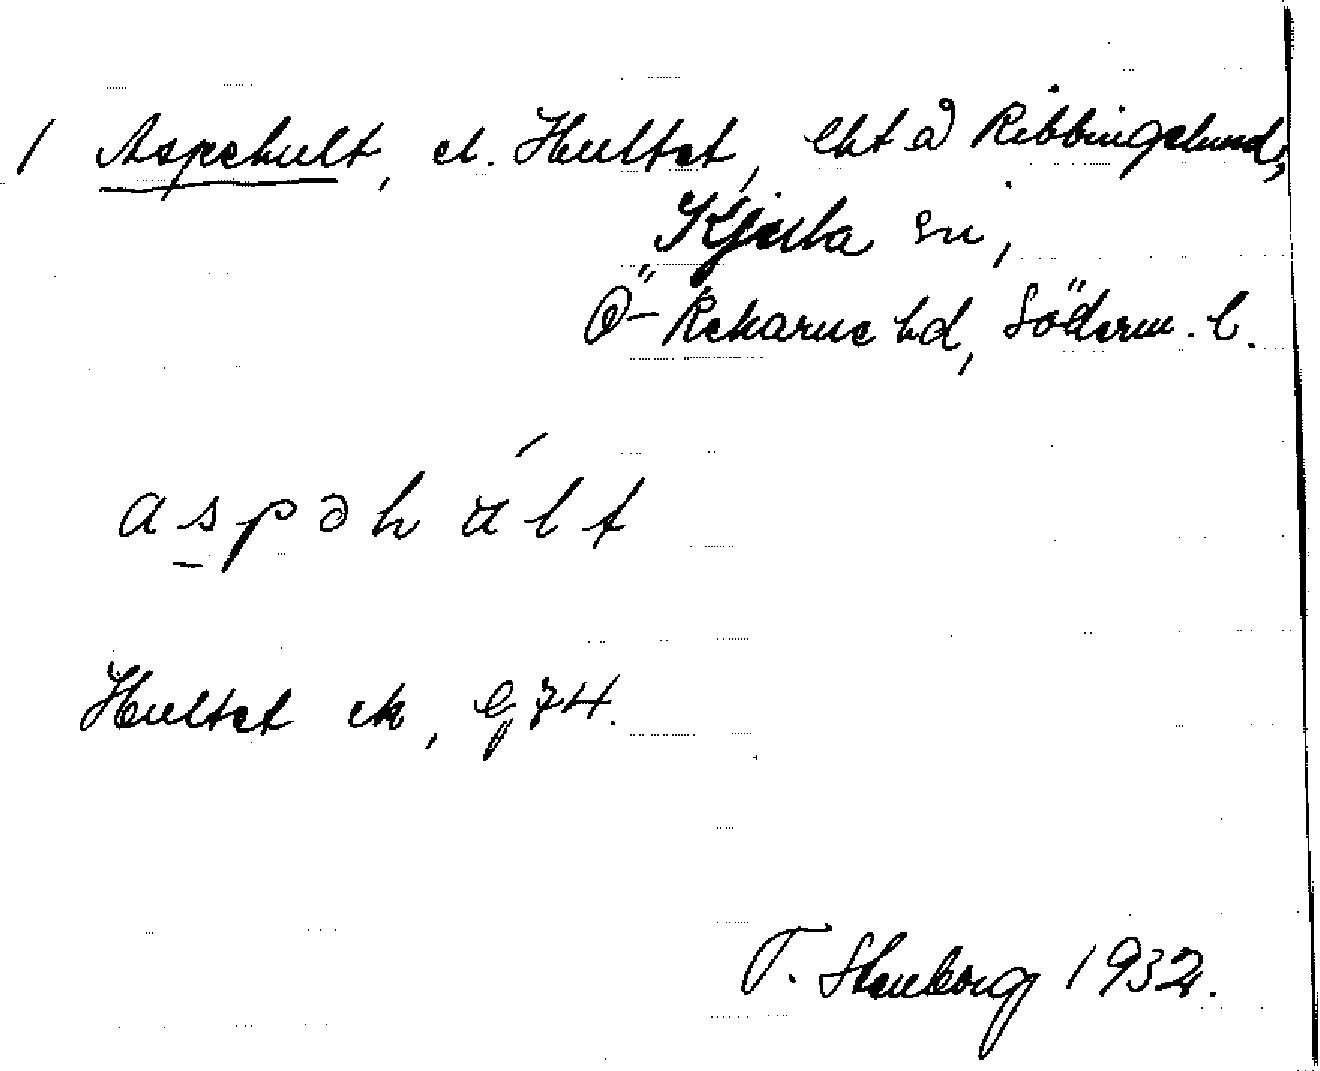 / Aspehult, el. Hultet, lht å Ribbingelund,
Kjula sn,
Ö-Rekarne hd, Söderm. l.
a s p ə h u l t
Hultet ek, G 74.
T. Stenberg 1932.